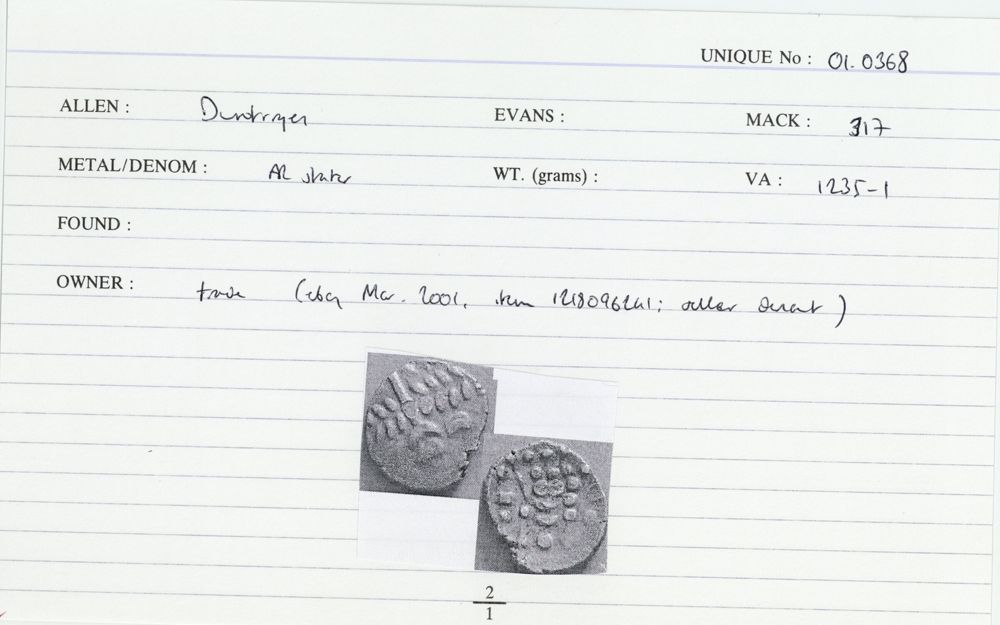 UNIQUE No : 01.0368
ALLEN : Durotriges EVANS : MACK : 317
METAL/DENOM : AR stater WT. (grams) : VA : 1235-1
FOUND :
OWNER : trade (ebay Mar. 2001, item 1218096241; seller )
2
1